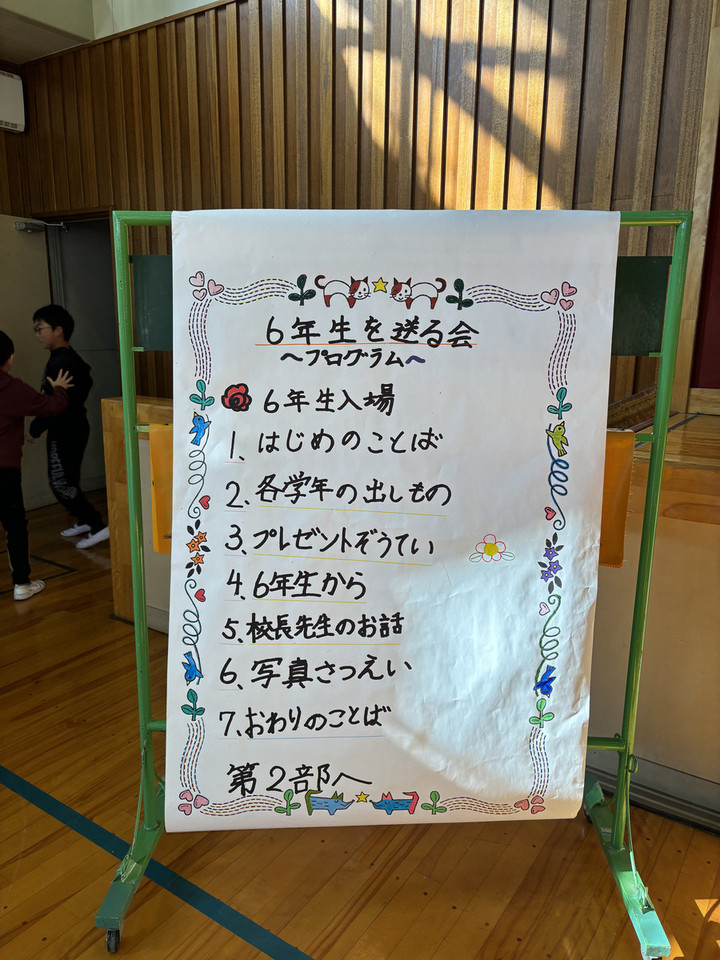 6年生を送る会
～プログラム～
6年生入場
1. はじめのことば
2. 各学年の出しもの
3. プレゼントぞうてい
4. 6年生から
5. 校長先生のお話
6. 写真さつえい
7. おわりのことば
第2部へ